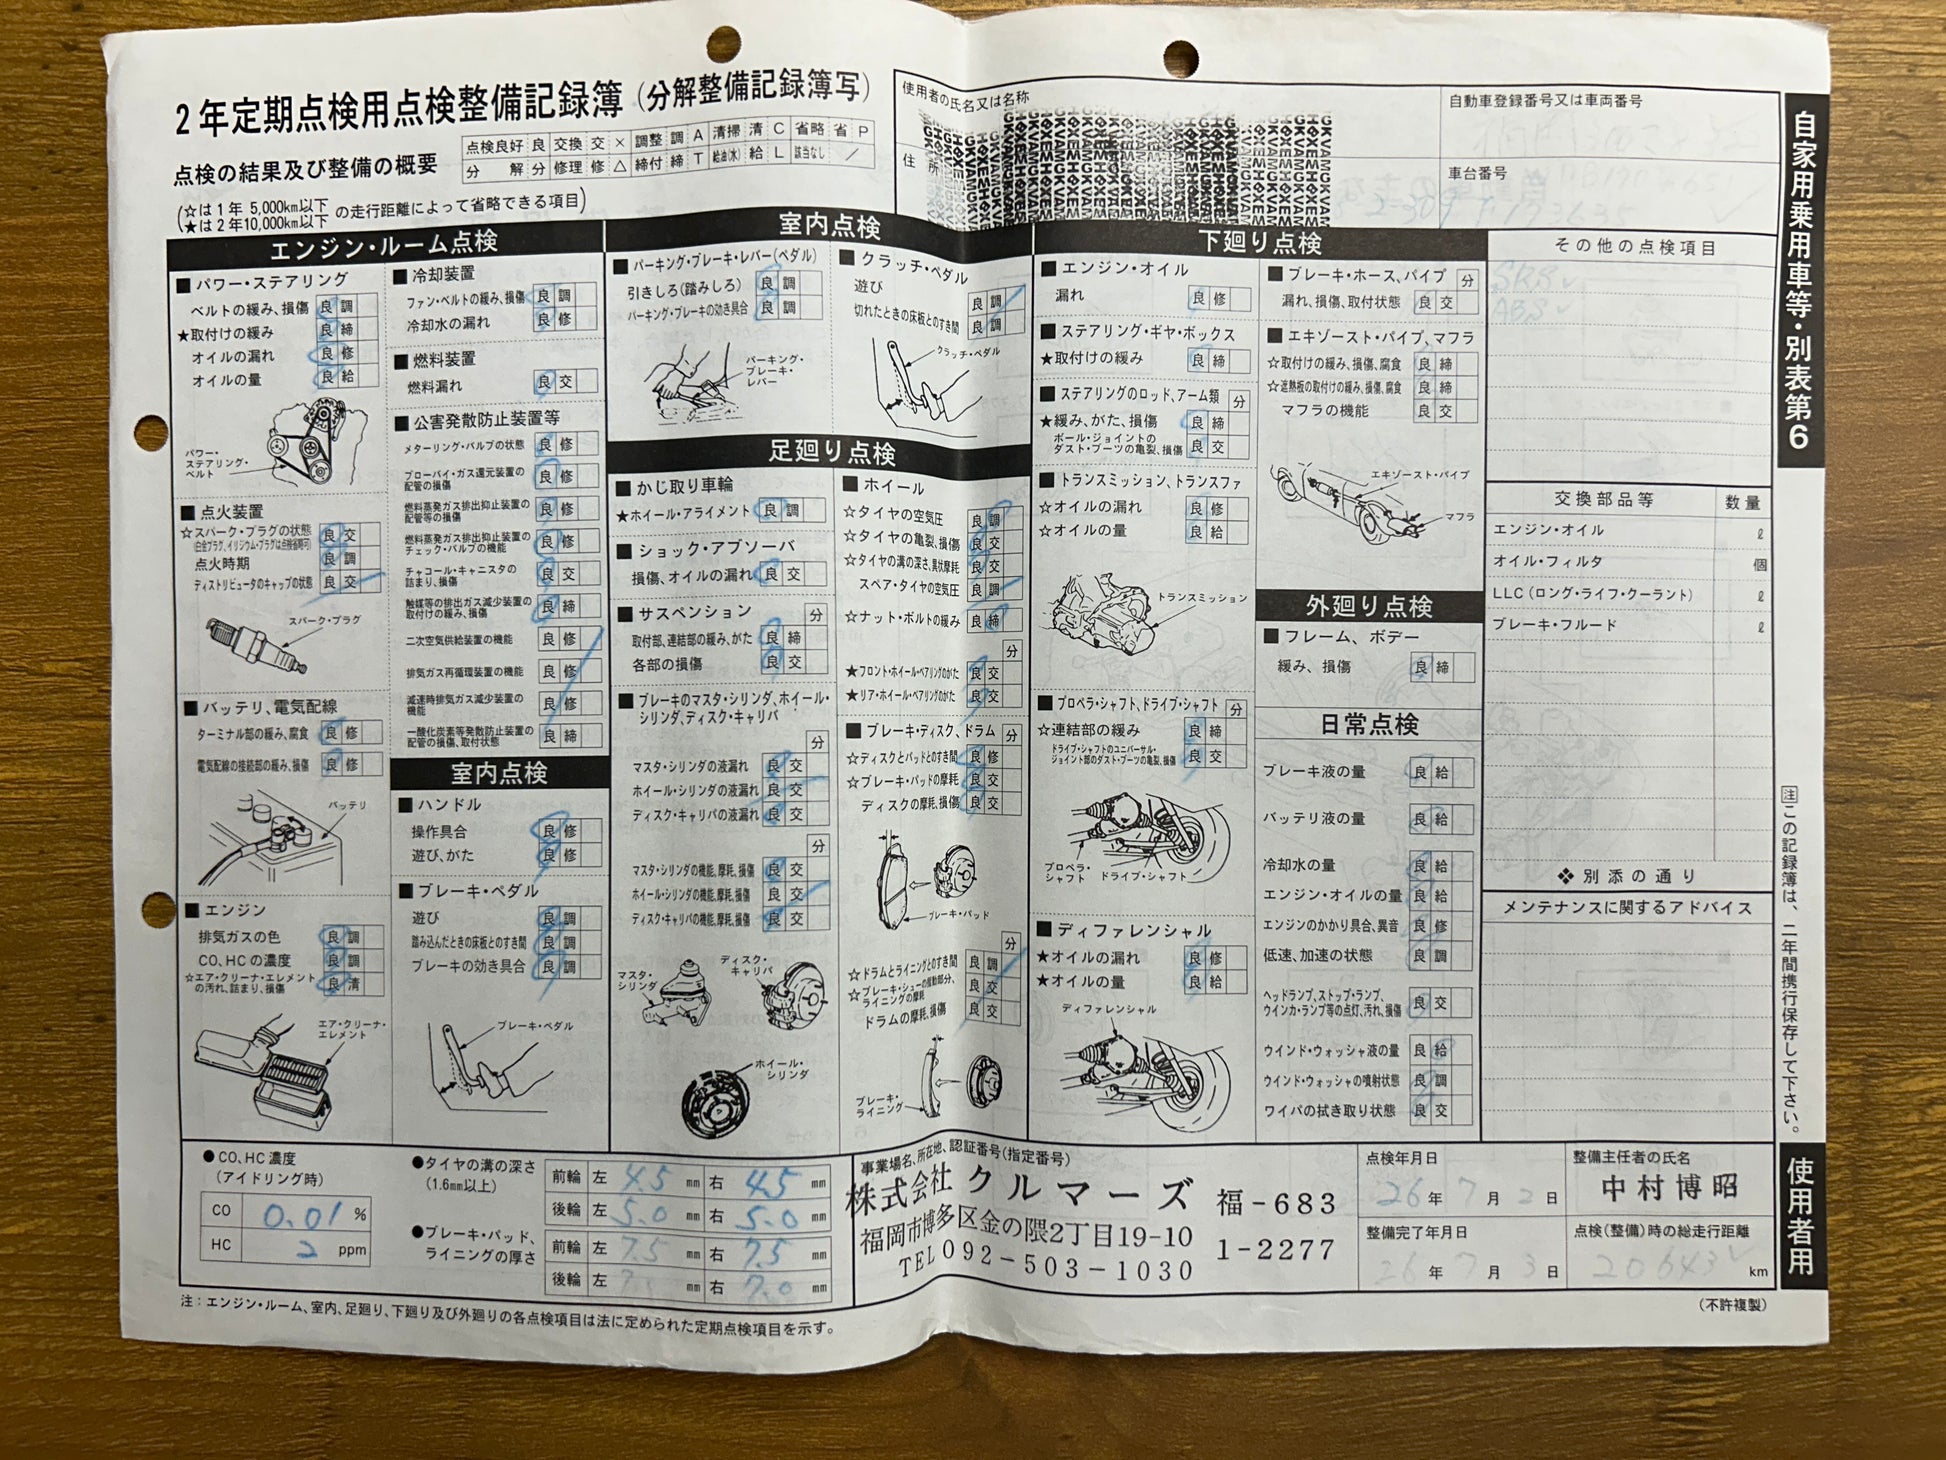 2年定期点検用点検整備記録簿(分解整備記録簿写)
点検の結果及び整備の概要
点検良好 良 交換 交 × 調整 調 A 清掃 清 C 省略 省 P
分解 分 修理 修 △ 締付 締 T 給油(水) 給 L 該当なし /
(☆は1年 5,000km以下
★は2年10,000km以下 の走行距離によって省略できる項目)
使用者の氏名又は名称
住所
自動車登録番号又は車両番号
車台番号
自家用乗用車等・別表第6
エンジン・ルーム点検
■パワー・ステアリング
ベルトの緩み、損傷 良 調
★取付けの緩み 良 締
オイルの漏れ 良 修
オイルの量 良 給
パワー・ステアリング・ベルト
■点火装置
☆スパーク・プラグの状態 良 交
(白金プラグ、イリジウム・プラグは点検省略可)
点火時期 良 調
ディストリビュータのキャップの状態 良 交
スパーク・プラグ
■バッテリ、電気配線
ターミナル部の緩み、腐食 良 修
電気配線の接続部の緩み、損傷 良 修
バッテリ
■エンジン
排気ガスの色 良 調
CO、HCの濃度 良 調
☆エア・クリーナ・エレメントの汚れ、詰まり、損傷 良 清
エア・クリーナ・エレメント
■冷却装置
ファン・ベルトの緩み、損傷 良 調
冷却水の漏れ 良 修
■燃料装置
燃料漏れ 良 交
■公害発散防止装置等
メターリング・バルブの状態 良 修
ブローバイ・ガス還元装置の配管の損傷 良 修
燃料蒸発ガス排出抑止装置の配管等の損傷 良 修
燃料蒸発ガス排出抑止装置のチェック・バルブの機能 良 修
チャコール・キャニスタの詰まり、損傷 良 交
触媒等の排出ガス減少装置の取付けの緩み、損傷 良 締
二次空気供給装置の機能 良 修
排気ガス再循環装置の機能 良 修
減速時排気ガス減少装置の機能 良 修
一酸化炭素等発散防止装置の配管の損傷、取付状態 良 締
室内点検
■ハンドル
操作具合 良 修
遊び、がた 良 修
■ブレーキ・ペダル
遊び 良 調
踏み込んだときの床板とのすき間 良 調
ブレーキの効き具合 良 調
ブレーキ・ペダル
室内点検
■パーキング・ブレーキ・レバー(ペダル)
引きしろ(踏みしろ) 良 調
パーキング・ブレーキの効き具合 良 調
パーキング・ブレーキ・レバー
■クラッチ・ペダル
遊び 良 調
切れたときの床板とのすき間 良 調
クラッチ・ペダル
足廻り点検
■かじ取り車輪
★ホイール・アライメント 良 調
■ショック・アブソーバ
損傷、オイルの漏れ 良 交
■サスペンション 分
取付部、連結部の緩み、がた 良 締
各部の損傷 良 交
■ブレーキのマスタ・シリンダ、ホイール・シリンダ、ディスク・キャリパ
分
マスタ・シリンダの液漏れ 良 交
ホイール・シリンダの液漏れ 良 交
ディスク・キャリパの液漏れ 良 交
分
マスタ・シリンダの機能、摩耗、損傷 良 交
ホイール・シリンダの機能、摩耗、損傷 良 交
ディスク・キャリパの機能、摩耗、損傷 良 交
マスタ・シリンダ
ディスク・キャリパ
ホイール・シリンダ
■ホイール
☆タイヤの空気圧 良 調
☆タイヤの亀裂、損傷 良 交
☆タイヤの溝の深さ、異状摩耗 良 交
スペア・タイヤの空気圧 良 調
☆ナット・ボルトの緩み 良 締
分
★フロント・ホイール・ベアリングのがた 良 交
★リア・ホイール・ベアリングのがた 良 交
■ブレーキ・ディスク、ドラム 分
☆ディスクとパッドとのすき間 良 修
☆ブレーキ・パッドの摩耗 良 交
ディスクの摩耗、損傷 良 交
ブレーキ・パッド
分
☆ドラムとライニングとのすき間 良 調
☆ブレーキ・シューの摺動部分、ライニングの摩耗 良 交
ドラムの摩耗、損傷 良 交
ブレーキ・ライニング
下廻り点検
■エンジン・オイル
漏れ 良 修
■ステアリング・ギヤ・ボックス
★取付けの緩み 良 締
■ステアリングのロッド、アーム類 分
★緩み、がた、損傷 良 締
ボール・ジョイントのダスト・ブーツの亀裂、損傷 良 交
■トランスミッション、トランスファ
☆オイルの漏れ 良 修
☆オイルの量 良 給
トランスミッション
■プロペラ・シャフト、ドライブ・シャフト 分
☆連結部の緩み 良 締
ドライブ・シャフトのユニバーサル・ジョイント部のダスト・ブーツの亀裂、損傷 良 交
プロペラ・シャフト
ドライブ・シャフト
■ディファレンシャル
★オイルの漏れ 良 修
★オイルの量 良 給
ディファレンシャル
■ブレーキ・ホース、パイプ 分
漏れ、損傷、取付状態 良 交
■エキゾースト・パイプ、マフラ
☆取付けの緩み、損傷、腐食 良 締
☆遮熱板の取付けの緩み、損傷、腐食 良 締
マフラの機能 良 交
エキゾースト・パイプ
マフラ
外廻り点検
■フレーム、ボデー
緩み、損傷 良 締
日常点検
ブレーキ液の量 良 給
バッテリ液の量 良 給
冷却水の量 良 給
エンジン・オイルの量 良 給
エンジンのかかり具合、異音 良 修
低速、加速の状態 良 調
ヘッドランプ、ストップ・ランプ、ウインカ・ランプ等の点灯、汚れ、損傷 良 交
ウインド・ウォッシャ液の量 良 給
ウインド・ウォッシャの噴射状態 良 調
ワイパの拭き取り状態 良 交
その他の点検項目
SRS ✓
ABS ✓
交換部品等 数量
エンジン・オイル ℓ
オイル・フィルタ 個
LLC(ロング・ライフ・クーラント) ℓ
ブレーキ・フルード ℓ
❖別添の通り
メンテナンスに関するアドバイス
注 この記録簿は、二年間携行保存して下さい。
使用者用
●CO、HC濃度
(アイドリング時)
CO 0.01 %
HC 2 ppm
●タイヤの溝の深さ
(1.6mm以上)
前輪 左 4.5 mm 右 4.5 mm
後輪 左 5.0 mm 右 5.0 mm
●ブレーキ・パッド、ライニングの厚さ
前輪 左 7.5 mm 右 7.5 mm
後輪 左 mm 右 7.0 mm
事業場名、所在地、認証番号(指定番号)
株式会社クルマーズ 福-683
福岡市博多区金の隈2丁目19-10 1-2277
TEL092-503-1030
点検年月日
26年7月2日
整備完了年月日
26年7月3日
整備主任者の氏名
中村博昭
点検(整備)時の総走行距離
20643 km
注:エンジン・ルーム、室内、足廻り、下廻り及び外廻りの各点検項目は法に定められた定期点検項目を示す。
(不許複製)